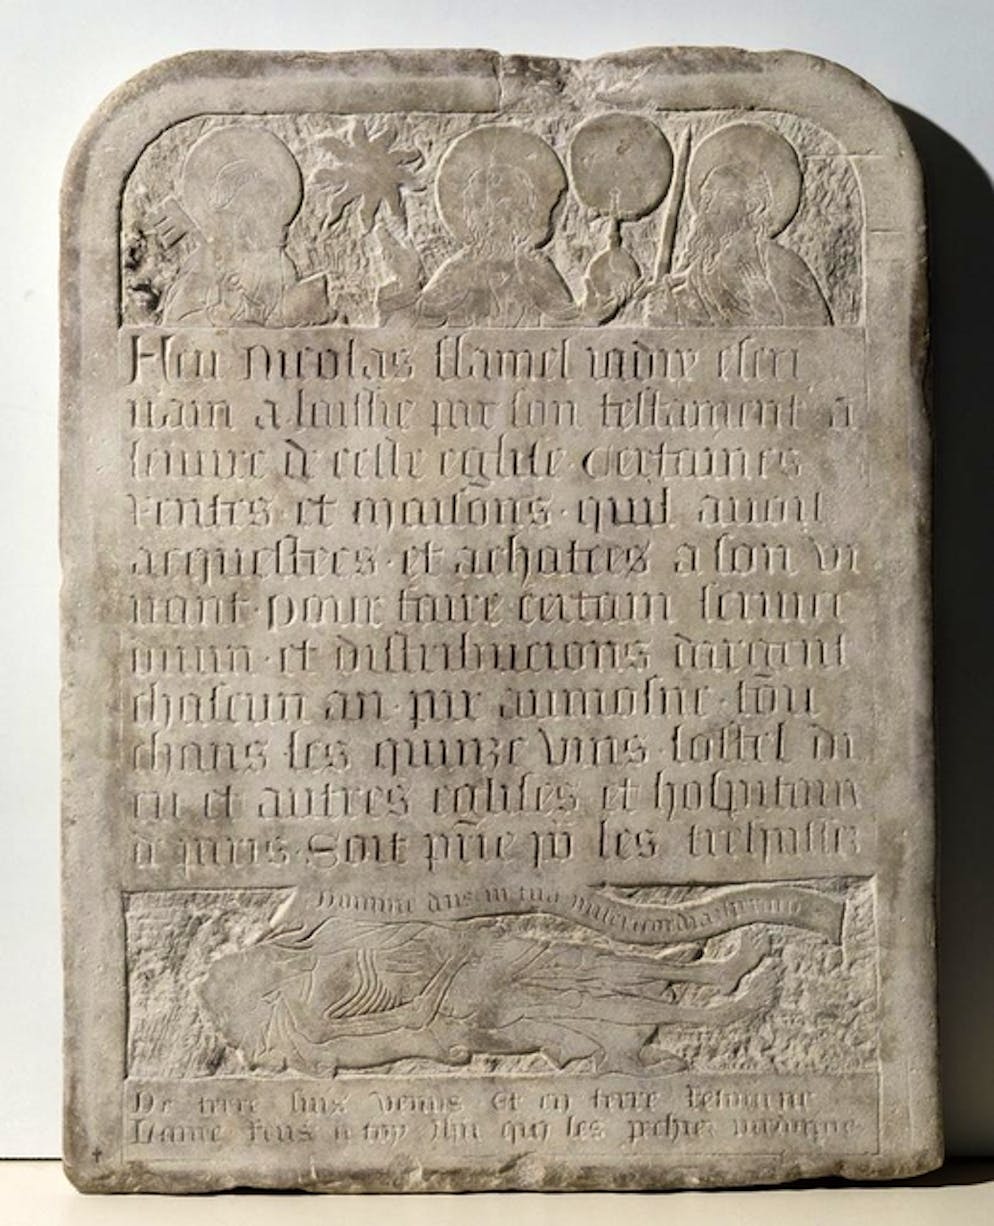 Feu Nicolas flamel jadiz escri
uain a laissie par son testament a
leuure de ceste eglise certaines
rentes et maisons quil auoit
acquestees et achatees a son vi
uant pour faire certain seruice
diuin et distribucions dargent
chascun an par aumosne tou
chans les quinze vins lostel di
eu et autres eglises et hospitaux
de paris Soit prie por les trespassez
Domine deus in tua misericordia speraui
De terre suis venus et en terre retourne
Lame rens a toy jhu qui les pechiez pardonne